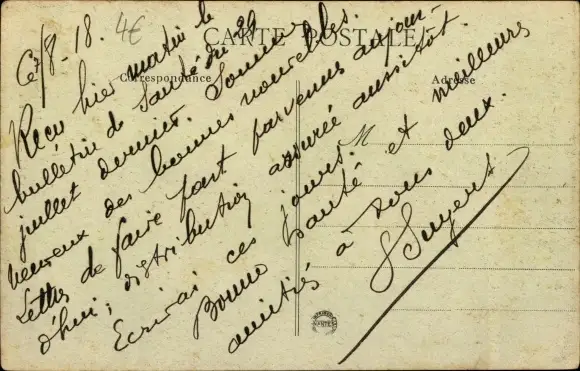 CARTE POSTALE
Correspondance
Adresse
M
4€
Ce 7/8-18.
Reçu hier matin le
bulletin de Santé du 29
juillet dernier. Sommes
heureux des bonnes nouvelles.
Lettres de faire part parvenues aujour-
d'hui; distribution assurée aussitôt.
Ecrirai ces jours.
Bonne Santé et meilleures
amitiés à tous deux.